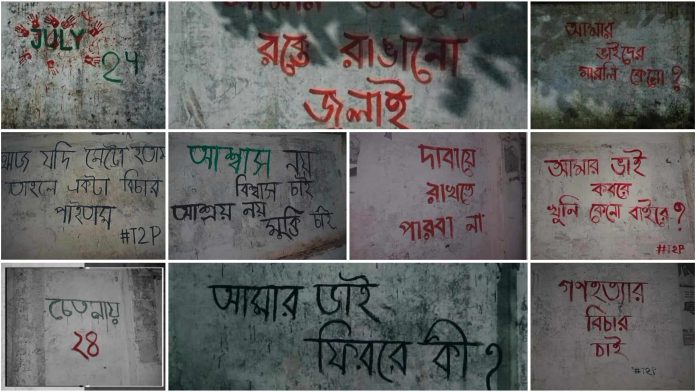 JULY
24
আমার ভাইয়ের
রক্তে রাঙানো
জুলাই
আমার
ভাইদের
মারলি কেনো?
আজ যদি মেট্রো হতাম
তাহলে একটা বিচার
পাইতাম
#T2P
আশ্বাস নয়
বিশ্বাস চাই
আশ্রয় নয়
মুক্তি চাই
দাবায়ে
রাখতে
পারবা না
আমার ভাই
কবরে
খুনি কেনো বাইরে?
#T2P
চেতনায়
২৪
আমার ভাই
ফিরবে কী?
গণহত্যার
বিচার
চাই
#T2P